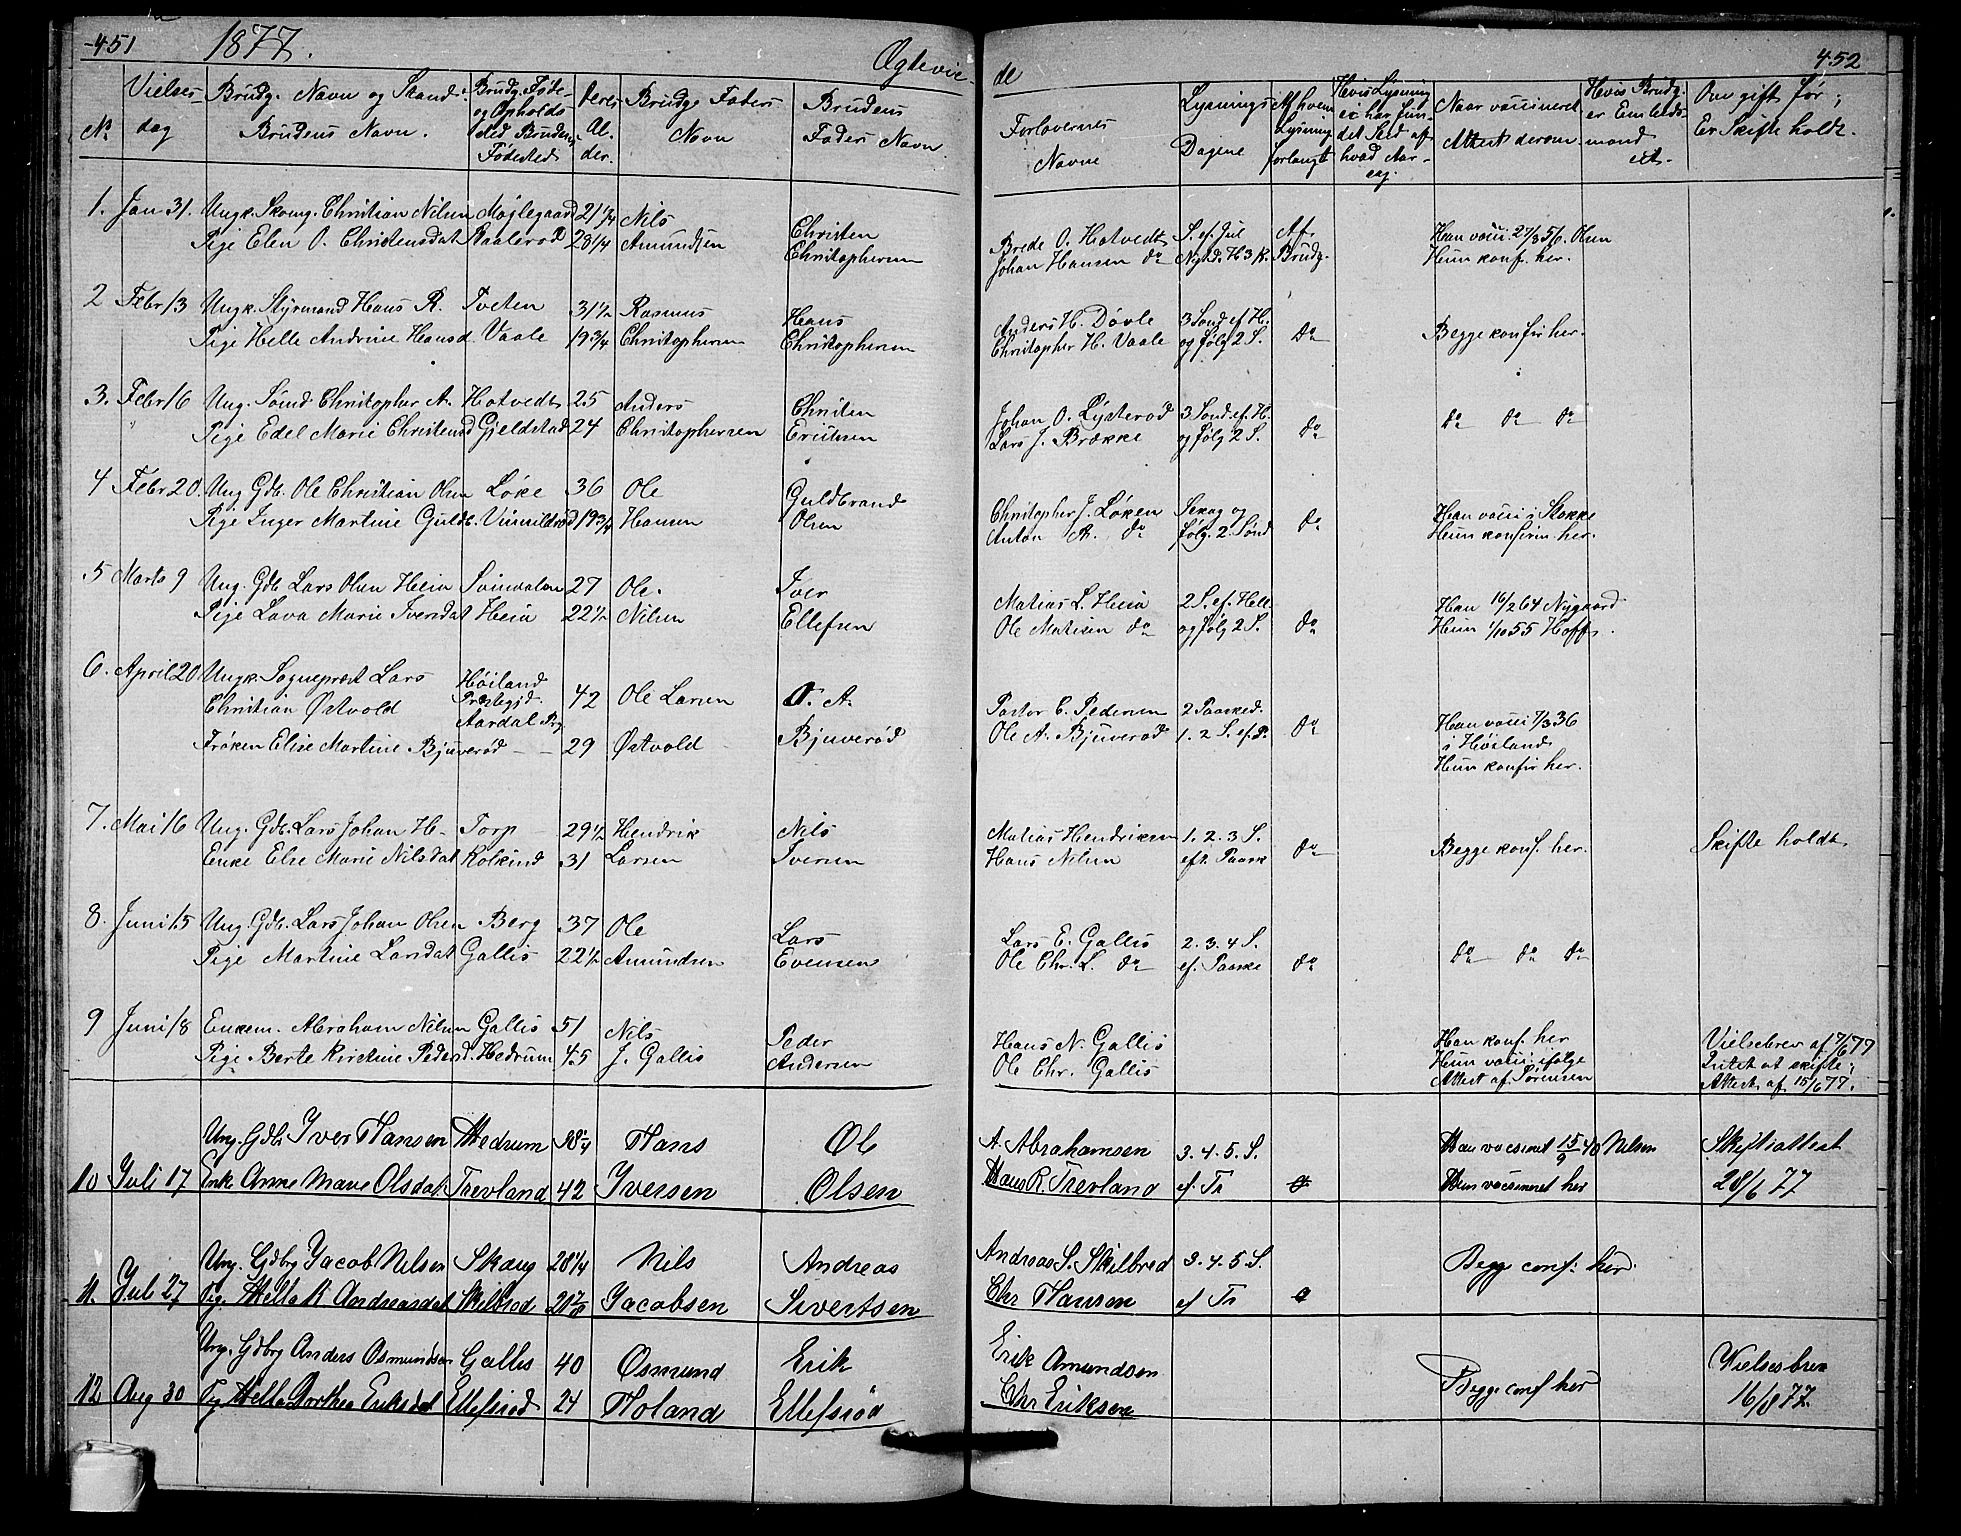 451 1877. Ægtevie-
de 452
No Vielses-dag Brudg. Navn og Stand. Brudens Navn. Brudg. Føde- og Opholdssted Brudens Fødested Deres Alder. Brudg. Faders Navn Brudens Faders Navn Forlovernes Navne Lysnings Dagene Af hvem Lysning forlangt Hvis Lysning ei har fundet Sted af hvad Aarsag. Naar vaccineret Attest derom Hvis Brudg. er Enkelds-mand Om gift før; Er Skifte holdt.
1. Jan 31. Ungk. Christian Nilsen Møglegaard 21 1/4 Nils Christen Brede O. Hotvedt S. ef. Jul Af Han vacc. 27/3 56. Olsen
Pige Elen O. Christensdat Raalerød 28 1/4 Amundsen Christophersen Johan Hansen do Nytd. H3K. Brudg. Hun konf. her.
2 Febr 13 Ungk. Styrmand Hans R. Tveten 31 1/2 Rasmus Hans Anders H. Døvle 3 Sønd. ef. H. do Begge konfir her.
Pige Helle Andrine Hansd. Vaale 19 3/4 Christophersen Christophersen Christopher H. Vaale og følg 2 S.
3. Febr 16 Ung. Sømd. Christopher A. Hotvedt 25 Anders Christen Johan O. Lysterød 3 Sønd. ef. H. do do do do
Pige Edel Marie Christensd Gjelstad 24 Christophersen Ericksen Lars J. Brække og følg 2 S.
4 Febr 20. Ung Gdb. Ole Christian Olsen Løke 36 Ole Guldbrand Christopher J. Løken Sexag og do Han vacci i Stokke
Pige Inger Martine Guldb. Vinnildrød 19 3/4 Hansen Olsen Anton A. do følg. 2. Sønd Hun konfirm. her.
5 Marts 9 Ung. Gdb. Lars Olsen Heia Sinvalen 27 Ole. Iver Matias L. Heia 2 S. ef. Hell. do Han 16/2 64 Nygaard
Pige Lava Marie Iversdat Heia 22 1/2 Nilsen Ellefsen Ole Matisen do og følg 2 S. Hun 1/10 55 Hoff.
6. April 20 Ungk. Sogneprest Lars Høiland
Christian Østvold Prestegjd. Aardal 42 Ole Larsen O. A. Pastor C. Pedersen 2 Paasked. do Han vacci 7/3 36 i Høiland
Frøken Elise Martine Bjuverød 29 Østvold Bjuverød Ole A. Bjuverød 1. 2 S. ef. P. Hun konfir her.
7. Mai 16 Ung. Gdb. Lars Johan H. Torp 29 1/2 Hendrik Nils Matias Hendriksen 1. 2. 3 S. do Begge konf. her. Skifte holdt
Enke Else Marie Nilsdat Kolkind 31 Larsen Iversen Hans Nilsen eft. Paask
8. Juni 15 Ung. Gdb. Lars Johan Olsen Berg 37 Ole Lars Lars E. Gallis 2. 3. 4 S. do do do do
Pige Martine Larsdat Gallis 22 1/2 Amundsen Evensen Ole Chr. L. do ef. Paaske
9 Juni 18 Enkem. Abraham Nilsen Gallis 51 Nils Peder Hans N. Gallis Han konf. her Vielsebrev af 7/6 77
Pige Berte Kirstine Pedersd. Hedrum 45 J. Gallis Andersen Ole Chr. Gallis Hun vacci ifølge Attest af Sørensen Intet at skifte; Attest af 15/6 77.
Ung. Gdb Iver Hansen Hedrum 38 1/4 Hans Ole A. Abrahamsen 3. 4. 5. S. Han vaccineret 15/9 40 Nelsen Skifteattest
10 Juli 17 Enke Anne Marie Olsdat. Trevland 42 Iversen Olsen Hans R. Trevland ef. Tr Hun vaccineret her 28/6 77
Ung. Gdbrg Jacob Nelsen Skaug 28 1/4 Nils Andreas Andreas S. Skilbred 3. 4. 5 S. Begge conf: her.
11. Juli 27 Pig. Hella K Andreasdat Skilbred Jacobsen Sivertsen Chr Hansen ef Tr
Ung. Gdbrg Anders Osmundsen Gallis 40 Osmund Erik Erik Amundsen Begge conf her Vielsesbrev
12 Aug 30 Pig Hella Dorthea Eriksdat Ellefsrød 24 Holand Ellefsrød Chr Eriksen 16/8 77.